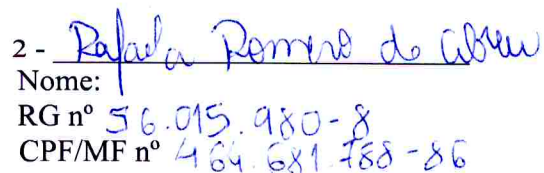 2 - Rafaela Romero de Abreu
Nome:
RG nº 56.015.980-8
CPF/MF nº 464.681.788-86